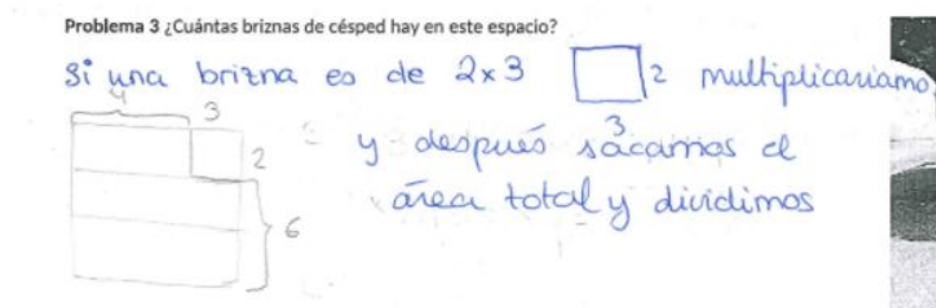 Problema 3 ¿Cuántas briznas de césped hay en este espacio?
Si una brizna es de 2x3 2 multiplicariamo
3
4
3
y después sacamos el
2
área total y dividimos
6